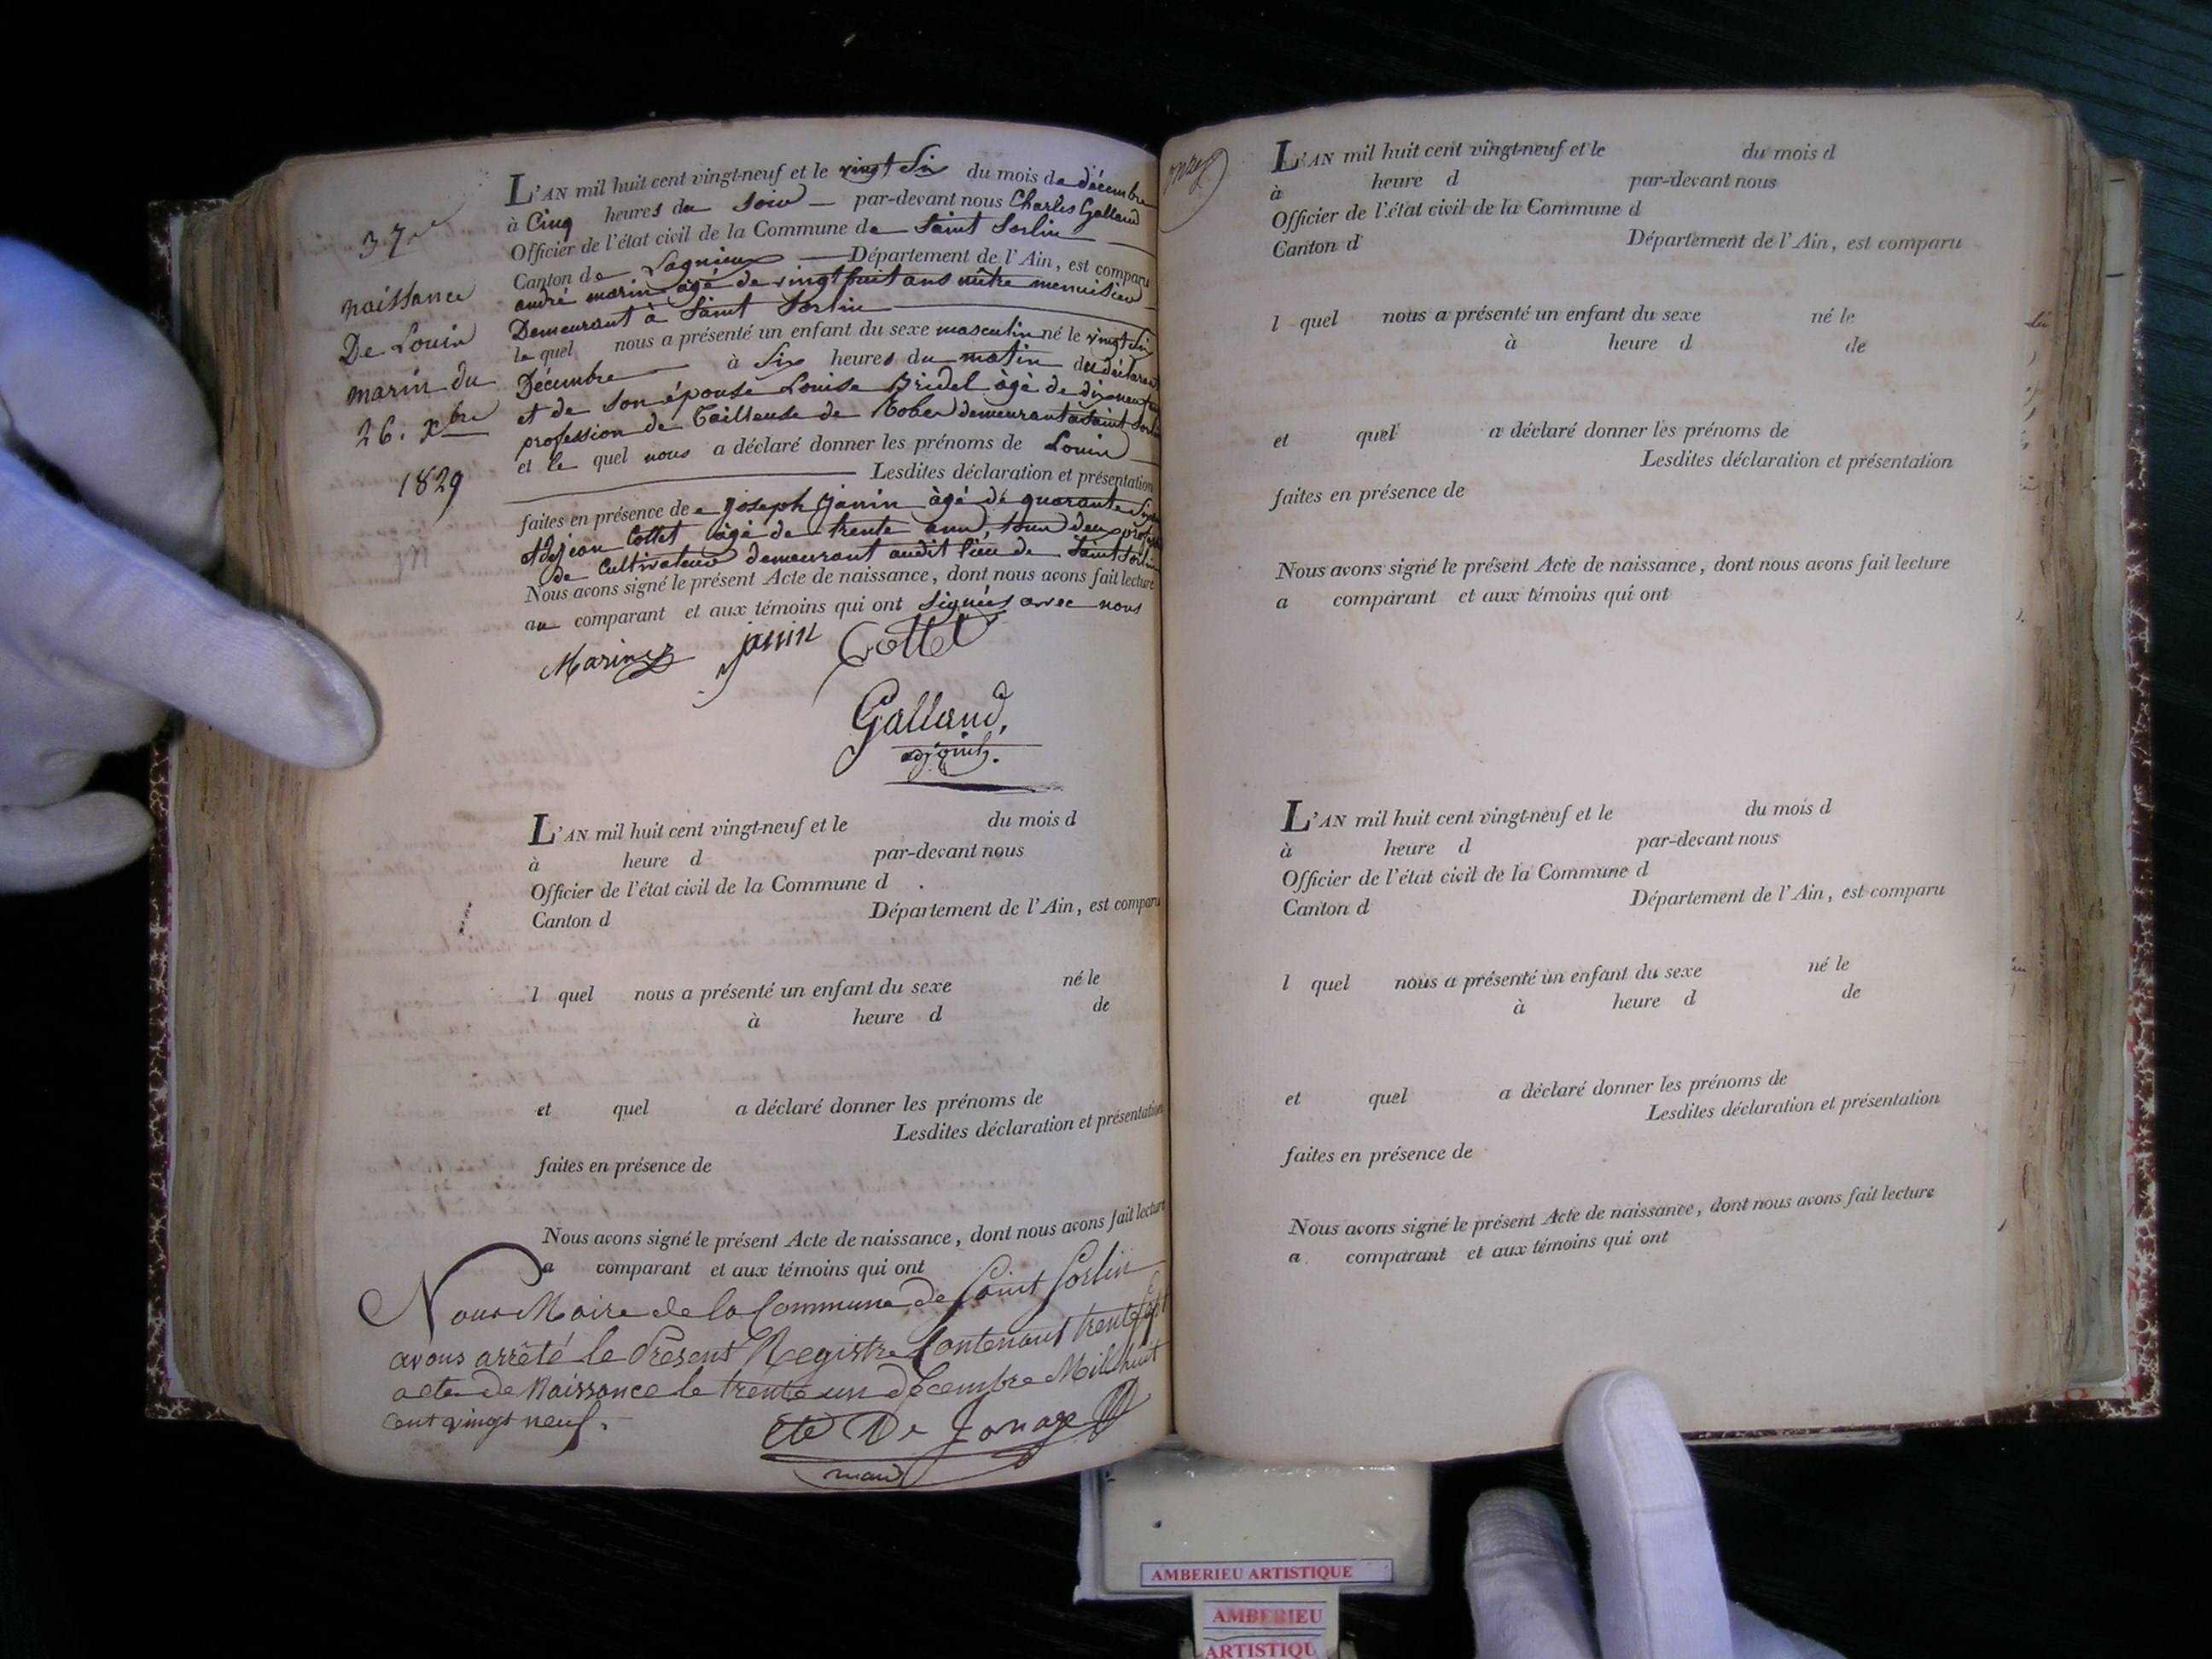 37e
naissance
De Louis
marin du
26. xbre
1829
L'AN mil huit cent vingt-neuf et le vingt Six du mois de décembre
à Cinq heures du Soir — par-devant nous Charles Galland
Officier de l'état civil de la Commune de Saint Sorlin
Canton de Lagnieux — Département de l'Ain, est comparu
andré marin âgé de vingt huit ans mître menuisier
Demeurant à Saint Sorlin
le quel nous a présenté un enfant du sexe masculin né le vingt Six
Décembre — à Six heures du matin du déclarant
et de son épouse Louise Bridel âgé de dixneuf
profession de Tailleuse de Robes demeurant à Saint Sorlin
et le quel nous a déclaré donner les prénoms de Louis
Lesdites déclaration et présentation
faites en présence de joseph janin âgé de quarante Six
et de jean Cottet âgé de trente ans, tous deux
de Cultivateurs demeurant audit lieu de Saint Sorlin
Nous avons signé le présent Acte de naissance, dont nous avons fait lecture
au comparant et aux témoins qui ont Signées avec nous
Marin janin Cottet
Galland,
adjoint.
L'AN mil huit cent vingt-neuf et le du mois d
à heure d par-devant nous
Officier de l'état civil de la Commune d
Canton d Département de l'Ain, est comparu
l quel nous a présenté un enfant du sexe né le
à heure d de
et quel a déclaré donner les prénoms de
Lesdites déclaration et présentation
faites en présence de
Nous avons signé le présent Acte de naissance, dont nous avons fait lecture
a comparant et aux témoins qui ont
Nous Maire de la Commune de Saint Sorlin
avons arrêté le Présent Registre Contenant trente Sept
actes de Naissance le trente un décembre Mil huit
cent vingt neuf.
De Jonage
maire
onze
L'AN mil huit cent vingt-neuf et le du mois d
à heure d par-devant nous
Officier de l'état civil de la Commune d
Canton d Département de l'Ain, est comparu
l quel nous a présenté un enfant du sexe né le
à heure d de
et quel a déclaré donner les prénoms de
Lesdites déclaration et présentation
faites en présence de
Nous avons signé le présent Acte de naissance, dont nous avons fait lecture
a comparant et aux témoins qui ont
L'AN mil huit cent vingt-neuf et le du mois d
à heure d par-devant nous
Officier de l'état civil de la Commune d
Canton d Département de l'Ain, est comparu
l quel nous a présenté un enfant du sexe né le
à heure d de
et quel a déclaré donner les prénoms de
Lesdites déclaration et présentation
faites en présence de
Nous avons signé le présent Acte de naissance, dont nous avons fait lecture
a comparant et aux témoins qui ont
AMBERIEU ARTISTIQUE
AMBERIEU
ARTISTIQU